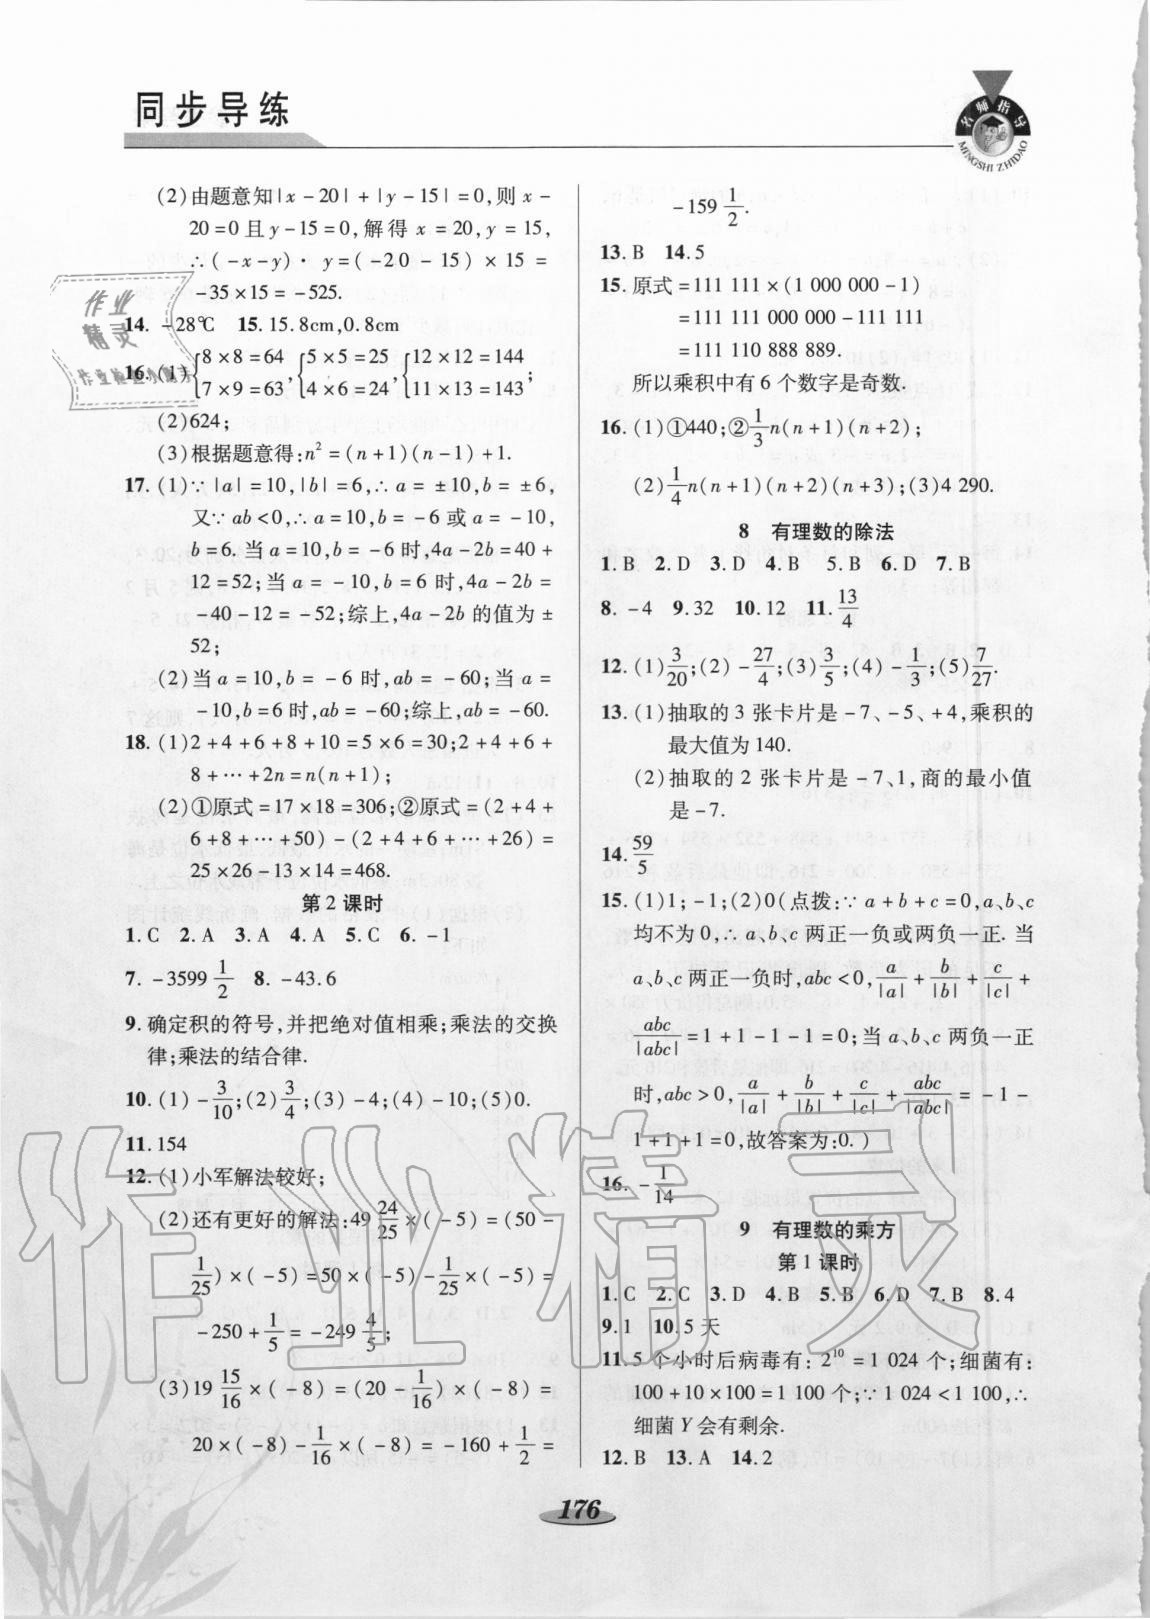 同步导练
名师指导
MINGSHI ZHIDAO
(2)由题意知|x-20|+|y-15|=0,则x-
20=0且y-15=0,解得x=20,y=15,
∴(-x-y)·y=(-20-15)×15=
-35×15=-525.
14. -28℃ 15. 15.8cm,0.8cm
16. (1){8×8=64 7×9=63,{5×5=25 4×6=24,{12×12=144 11×13=143;
(2)624;
(3)根据题意得:n²=(n+1)(n-1)+1.
17. (1)∵|a|=10,|b|=6,∴a=±10,b=±6,
又∵ab<0,∴a=10,b=-6或a=-10,
b=6.当a=10,b=-6时,4a-2b=40+
12=52;当a=-10,b=6时,4a-2b=
-40-12=-52;综上,4a-2b的值为±
52;
(2)当a=10,b=-6时,ab=-60;当a=
-10,b=6时,ab=-60;综上,ab=-60.
18. (1)2+4+6+8+10=5×6=30;2+4+6+
8+…+2n=n(n+1);
(2)①原式=17×18=306;②原式=(2+4+
6+8+…+50)-(2+4+6+…+26)=
25×26-13×14=468.
第2课时
1. C 2. A 3. A 4. A 5. C 6. -1
7. -3599 1/2 8. -43.6
9. 确定积的符号,并把绝对值相乘;乘法的交换
律;乘法的结合律.
10. (1)-3/10;(2)3/4;(3)-4;(4)-10;(5)0.
11. 154
12. (1)小军解法较好;
(2)还有更好的解法:49 24/25×(-5)=(50-
1/25)×(-5)=50×(-5)-1/25×(-5)=
-250+1/5=-249 4/5;
(3)19 15/16×(-8)=(20-1/16)×(-8)=
20×(-8)-1/16×(-8)=-160+1/2=
-159 1/2.
13. B 14. 5
15. 原式=111 111×(1 000 000-1)
=111 111 000 000-111 111
=111 110 888 889.
所以乘积中有6个数字是奇数.
16. (1)①440;②1/3n(n+1)(n+2);
(2)1/4n(n+1)(n+2)(n+3);(3)4 290.
8 有理数的除法
1. B 2. D 3. D 4. B 5. B 6. D 7. B
8. -4 9. 32 10. 12 11. 13/4
12. (1)3/20;(2)-27/4;(3)3/5;(4)-1/3;(5)7/27.
13. (1)抽取的3张卡片是-7、-5、+4,乘积的
最大值为140.
(2)抽取的2张卡片是-7、1,商的最小值
是-7.
14. 59/5
15. (1)1;-1;(2)0(点拨:∵a+b+c=0,a、b、c
均不为0,∴a、b、c两正一负或两负一正.当
a、b、c两正一负时,abc<0,a/|a|+b/|b|+c/|c|+
abc/|abc|=1+1-1-1=0;当a、b、c两负一正
时,abc>0,a/|a|+b/|b|+c/|c|+abc/|abc|=-1-
1+1+1=0,故答案为:0.)
16. -1/14
9 有理数的乘方
第1课时
1. C 2. C 3. D 4. B 5. B 6. D 7. B 8. 4
9. 1 10. 5天
11. 5个小时后病毒有:2¹⁰=1 024个;细菌有:
100+10×100=1 100个;∵1 024<1 100,∴
细菌Y会有剩余.
12. B 13. A 14. 2
176
作业精灵
作业精灵